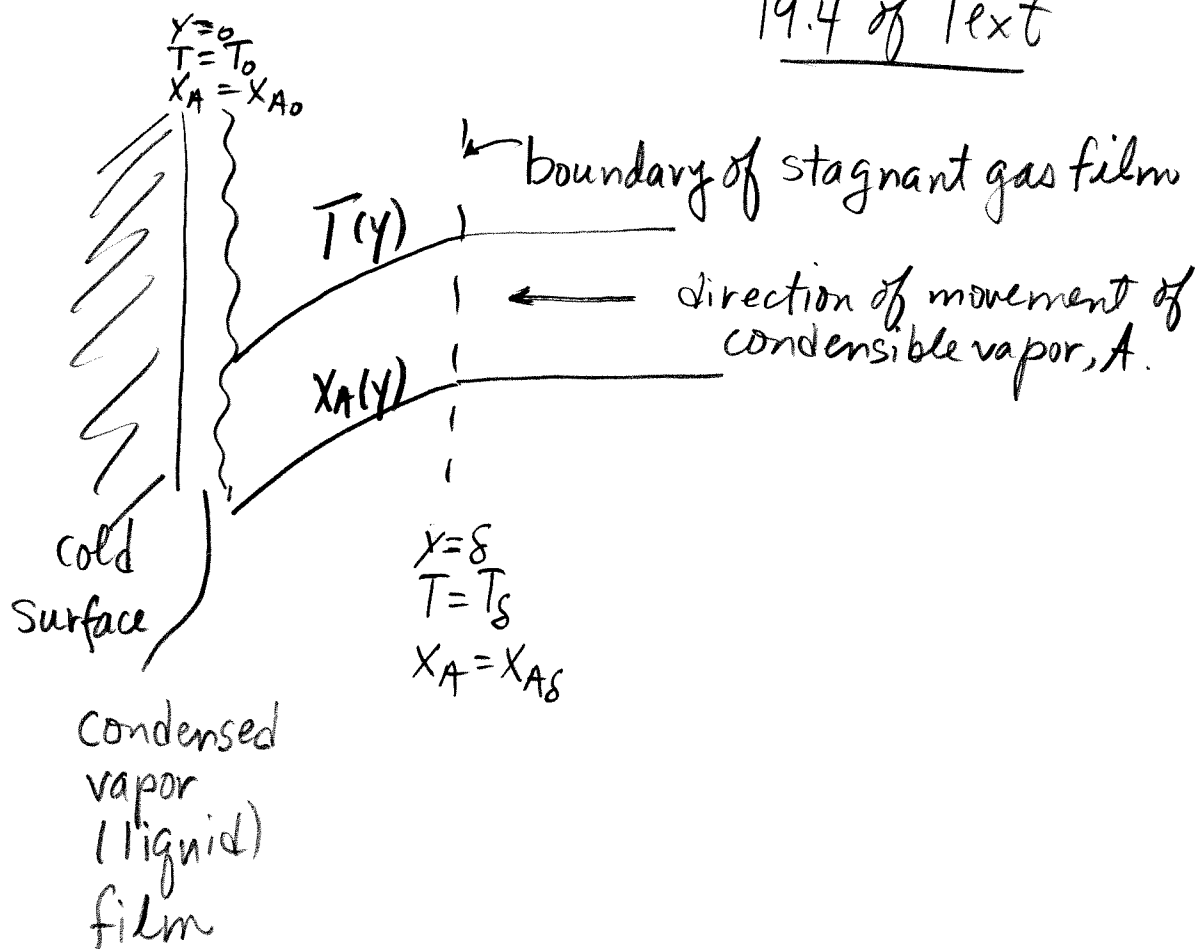 19.4 of Text
y=0
T=T₀
X_A=X_A₀
boundary of stagnant gas film
T(y)
direction of movement of
condensible vapor, A.
X_A(y)
Cold
Surface
y=δ
T=T_δ
X_A=X_Aδ
Condensed
vapor
(liquid)
film